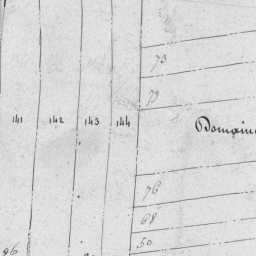 73
141 142 143 144
Domaine
76
68
50
96